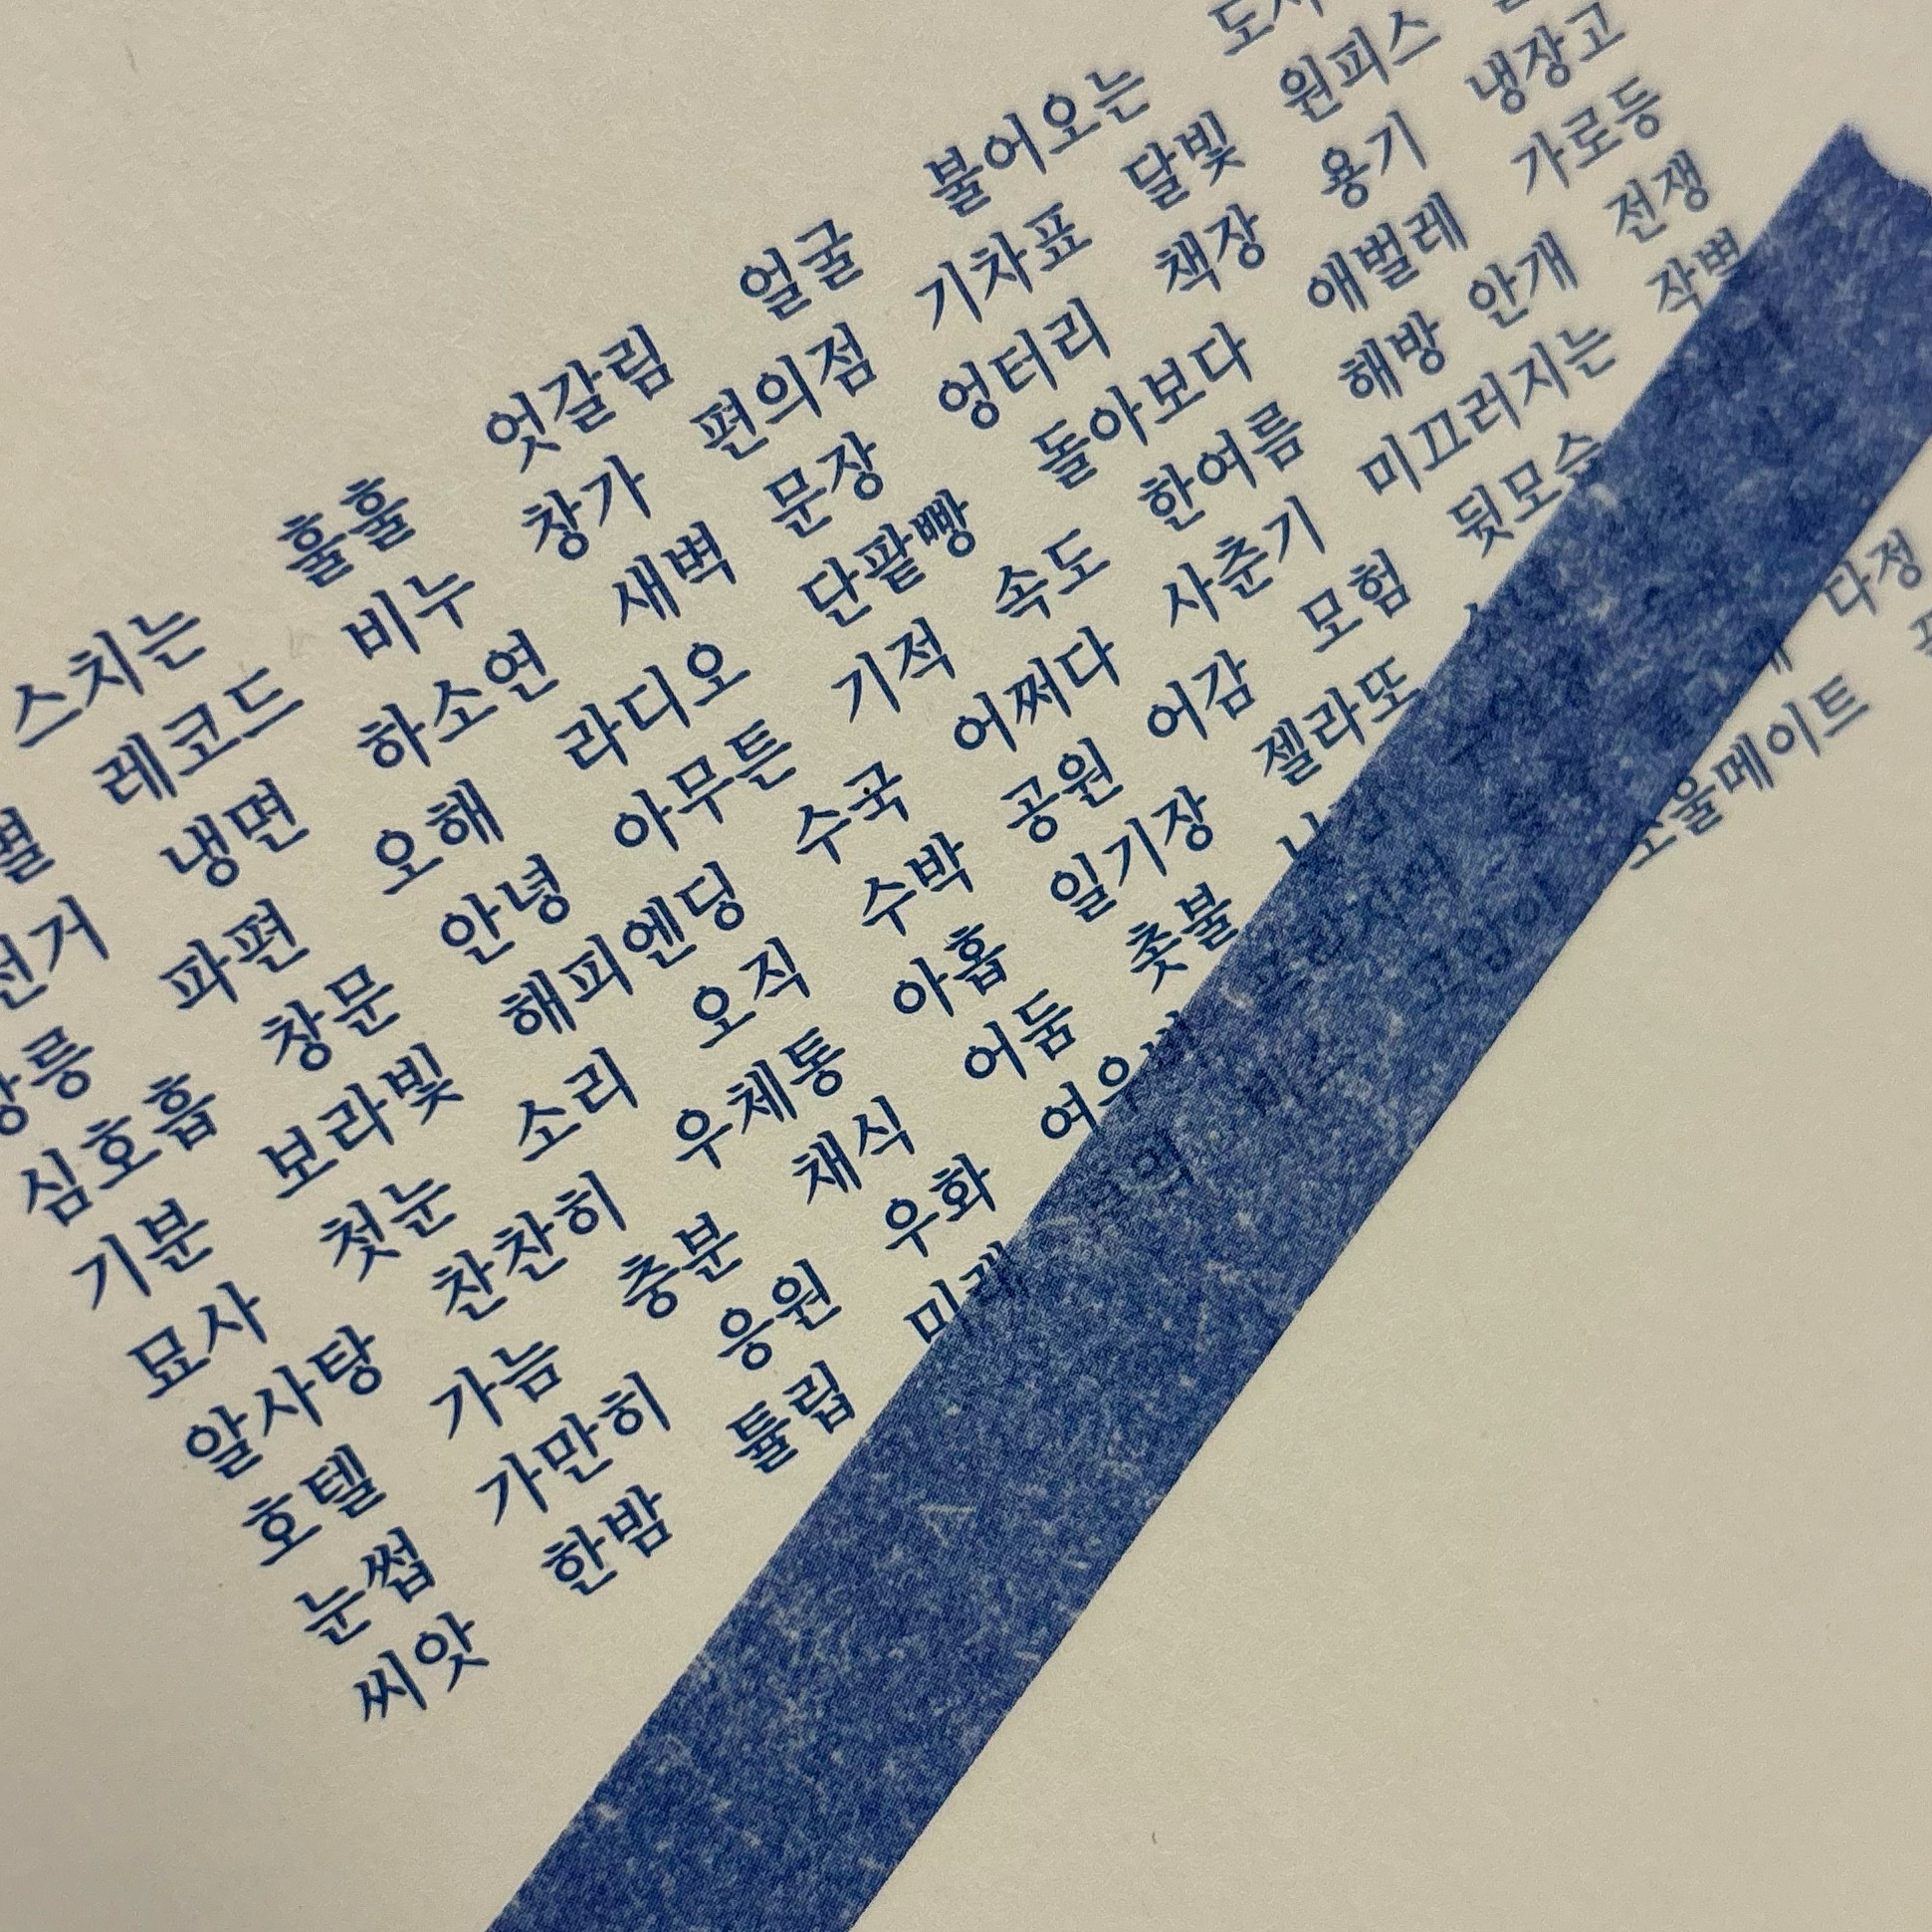 스치는 훌훌 엇갈림 얼굴 불어오는
레코드 비누 창가 편의점 기차표 달빛 원피스
냉면 하소연 새벽 문장 엉터리 책장 용기 냉장고
파편 오해 라디오 단팥빵 돌아보다 애벌레 가로등
심호흡 창문 안녕 아무튼 기적 속도 한여름 해방 안개 전쟁
기분 보라빛 해피엔딩 수국 어쩌다 사춘기 미끄러지는 작별
묘사 첫눈 소리 오직 수박 공원 어감 모험 뒷모습
알사탕 찬찬히 우체통 아홉 일기장 젤라또
호텔 가늠 충분 채식 어둠 촛불
눈썹 가만히 응원 우화 여우비 다정
씨앗 한밤 튤립 미래 고양이 소울메이트